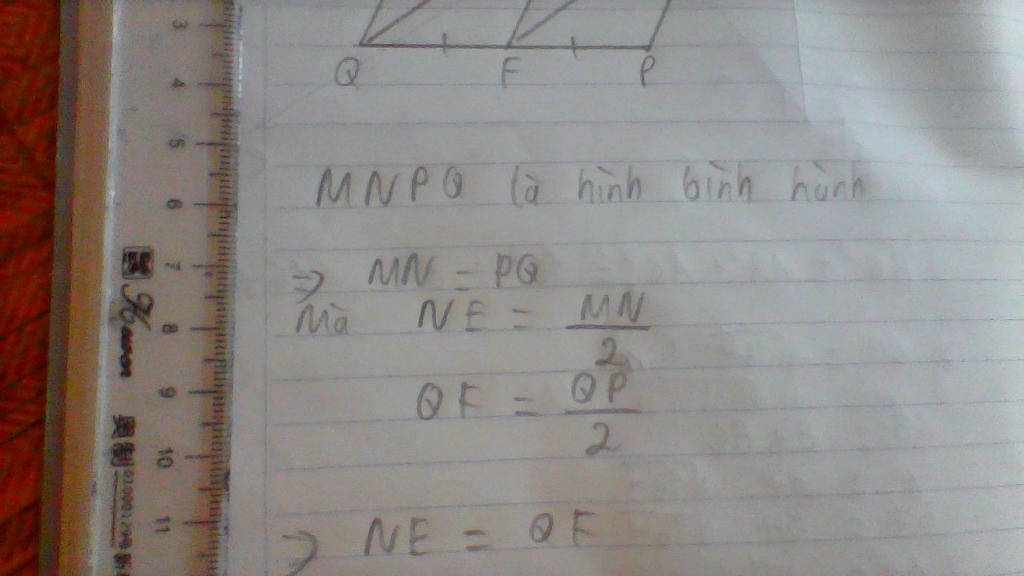 Q F P
MNPQ là hình bình hành
=> MN = PQ
Mà NE = MN/2
QF = QP/2
=> NE = QF
3
4
5
6
7
8
9
10
11